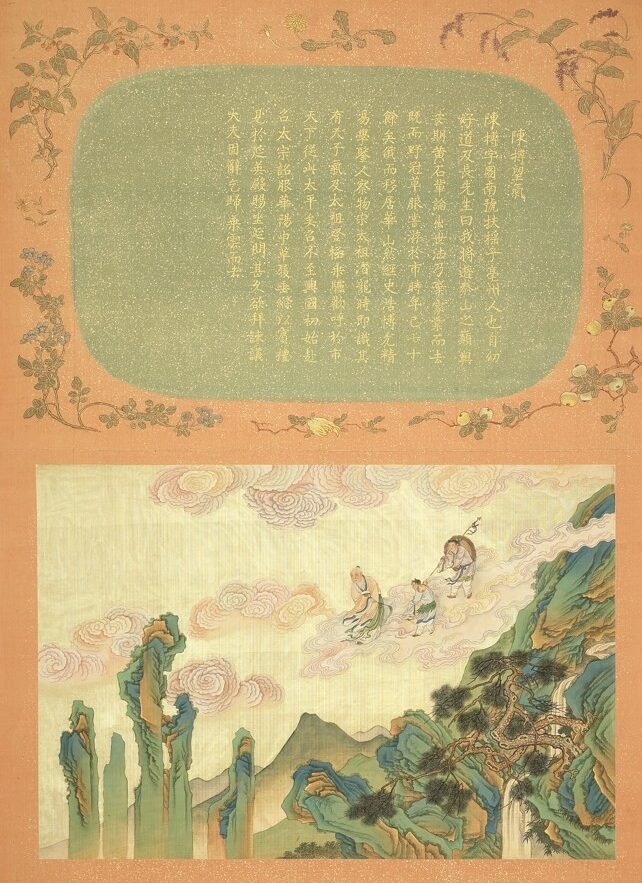 陳摶望氣
陳摶字圖南號扶搖子亳州人也自幼
好道及長先生曰我將遊泰山之巔與
安期黃石輩論出世法乃棄家業而去
既而野冠草服嘗游於市時年已七十
餘矣俄而移居華山於經史浩博尤精
易學鑒人察物宋太祖潛龍時即識其
有天子氣及太祖登極乘驢歡呼於市
天下從此太平矣召不至興國初始赴
召太宗詔服華陽巾草履垂絛以賓禮
見於延英殿賜坐延問甚久欲拜諫議
大夫固辭乞歸乘雲而去